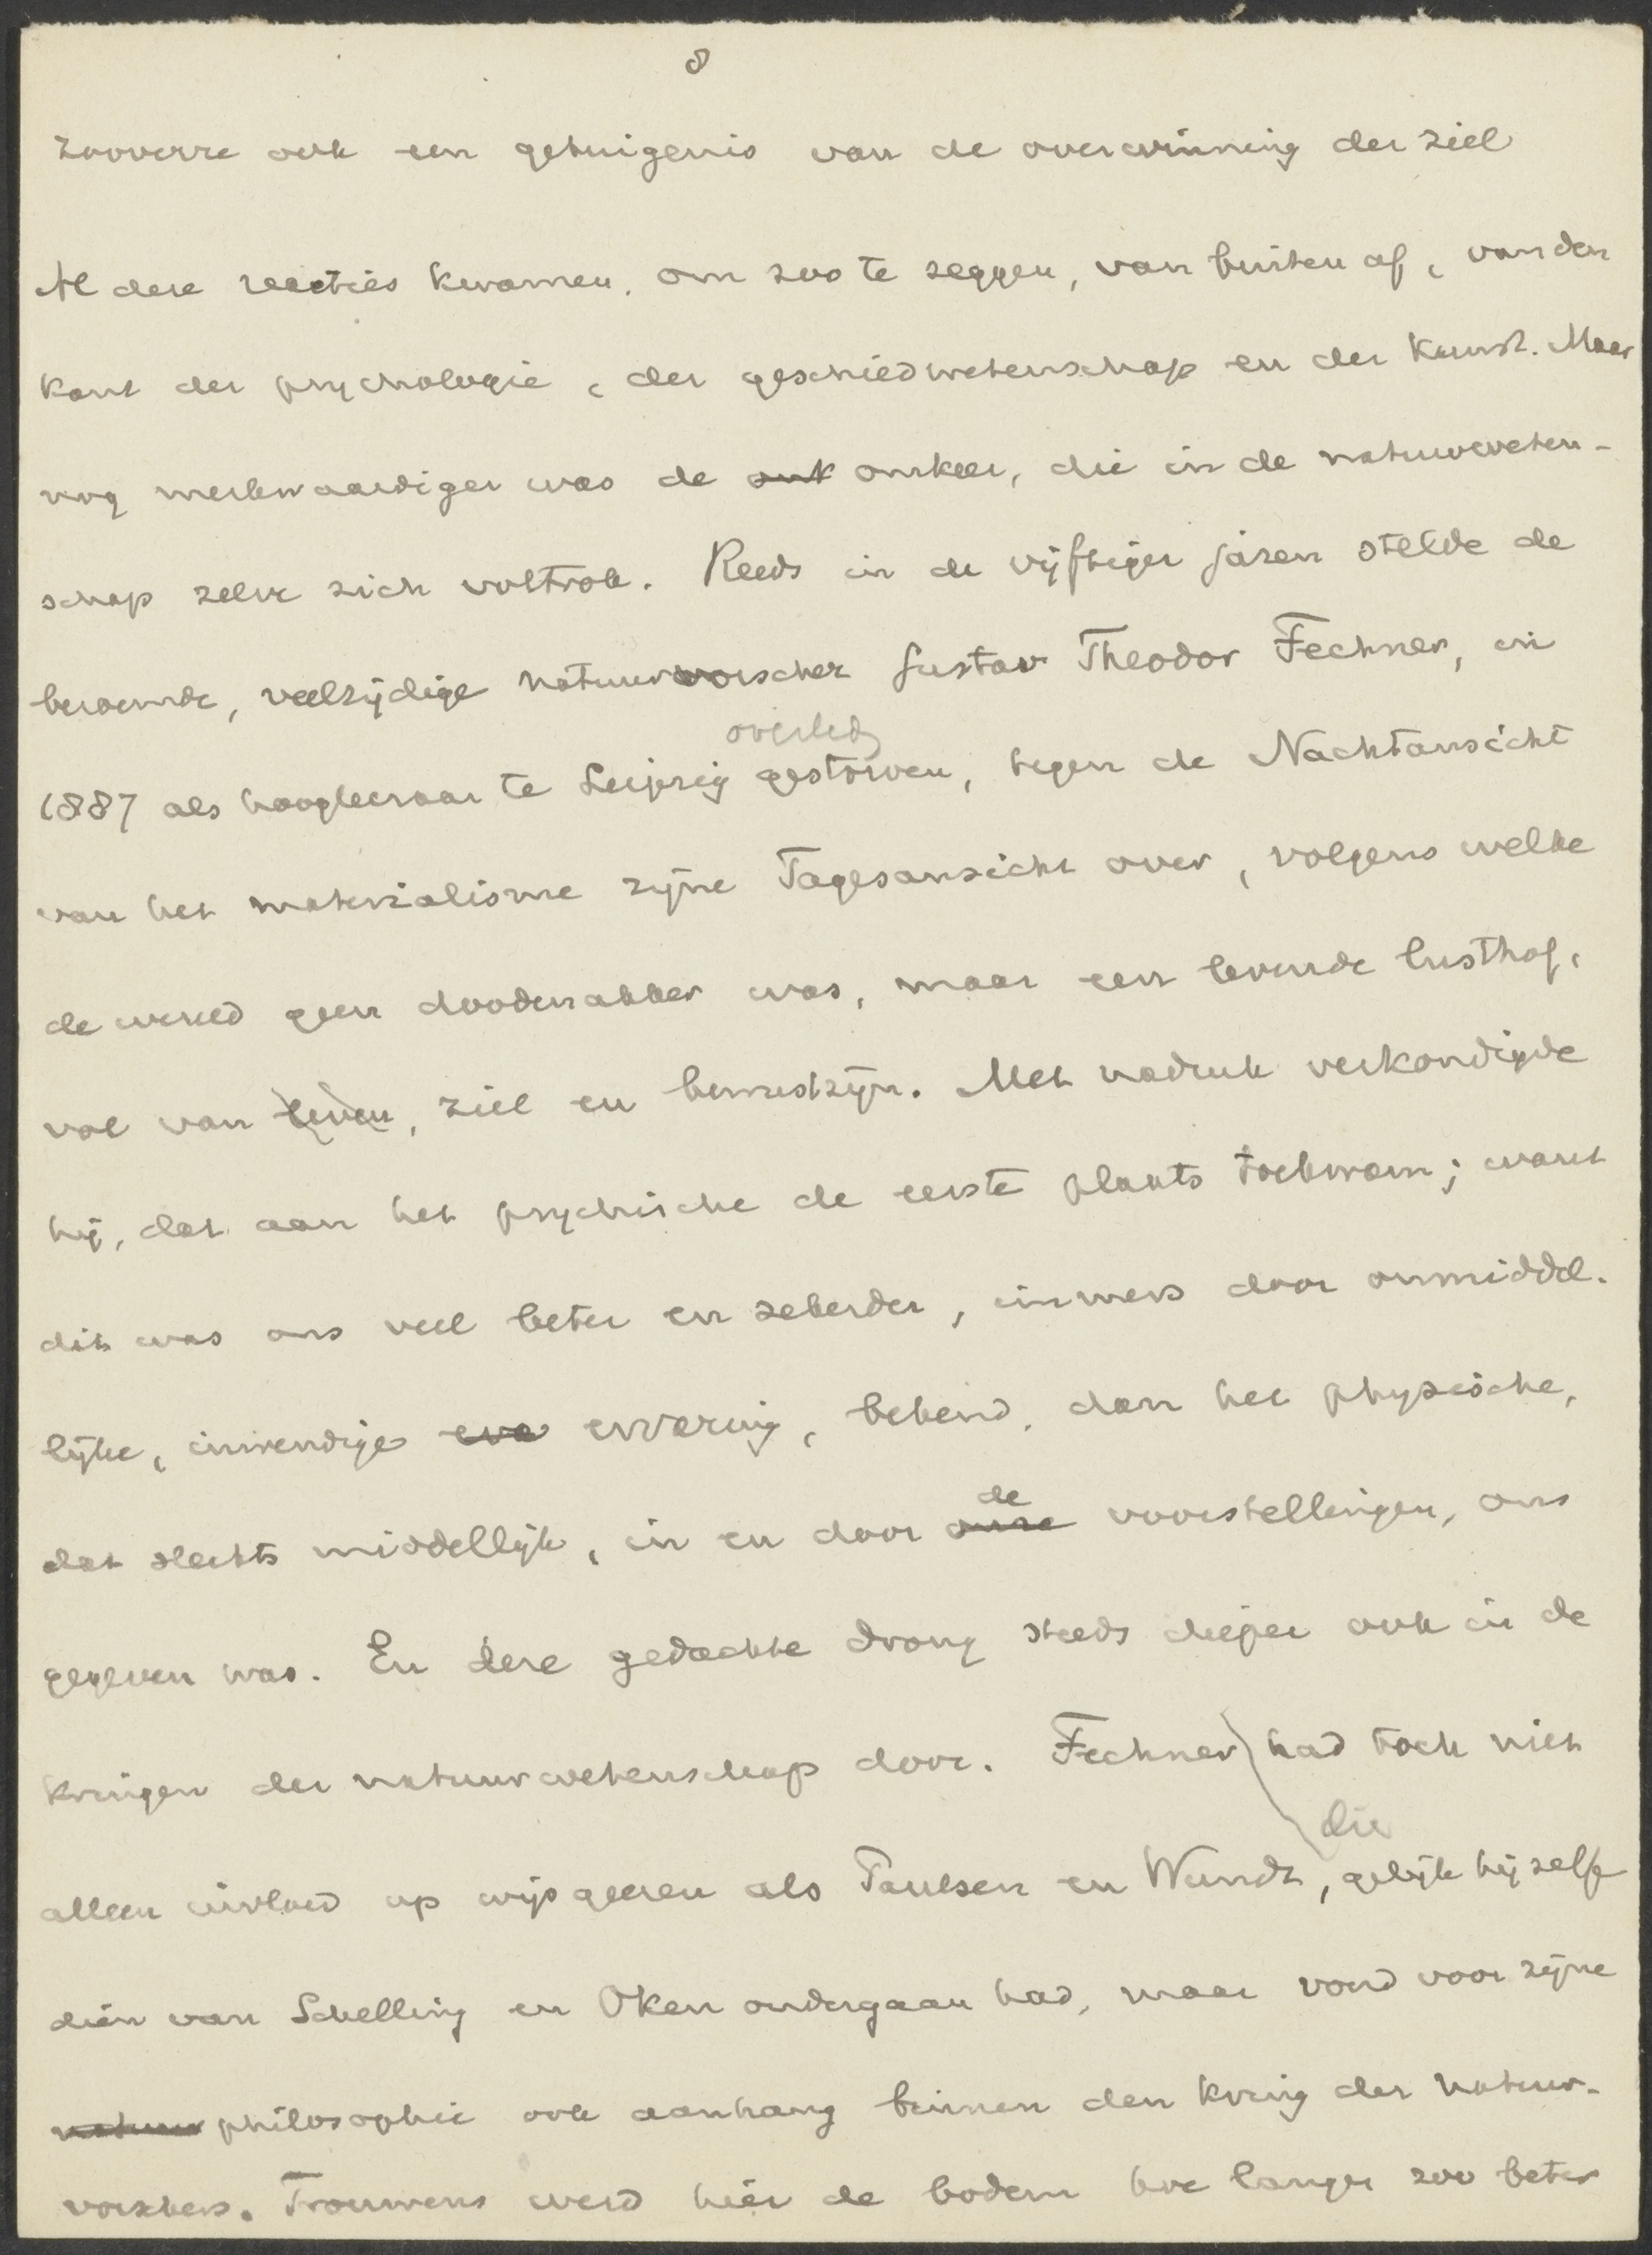 8
zooverre ook een getuigenis van de overwinning der ziel
Al deze reacties kwamen, om zoo te zeggen, van buiten af, van den
kant der psychologie, der geschiedwetenschap en der kunst. Maar
nog merkwaardiger was de omk omkeer, die in de natuurweten-
schap zelve zich voltrok. Reeds in de vijftiger jaren stelde de
beroemde, veelzijdige natuurvorscher Gustav Theodor Fechner, in
overled
1887 als hoogleeraar te Leipzig gestorven, tegen de Nachtansicht
van het materialisme zijne Tagesansicht over, volgens welke
de wereld geen doodenakker was, maar een levende lusthof,
vol van leven, ziel en bewustzijn. Met nadruk verkondigde
hij, dat aan het psychische de eerste plaats toekwam; want
dit was ons veel beter en zekerder, immers door onmiddel-
lijke, inwendige erva ervaring, bekend, dan het physische,
de
dat slechts middellijk, in en door onze voorstellingen, ons
gegeven was. En deze gedachte drong steeds dieper ook in de
kringen der natuurwetenschap door. Fechner had toch niet
die
alleen invloed op wijsgeeren als Paulsen en Wundt, gelijk hij zelf
dien van Schelling en Oken ondergaan had, maar vond voor zijne
natuur philosophie ook aanhang binnen den kring der natuur-
vorschers. Trouwens werd hier de bodem hoe langer zoo beter